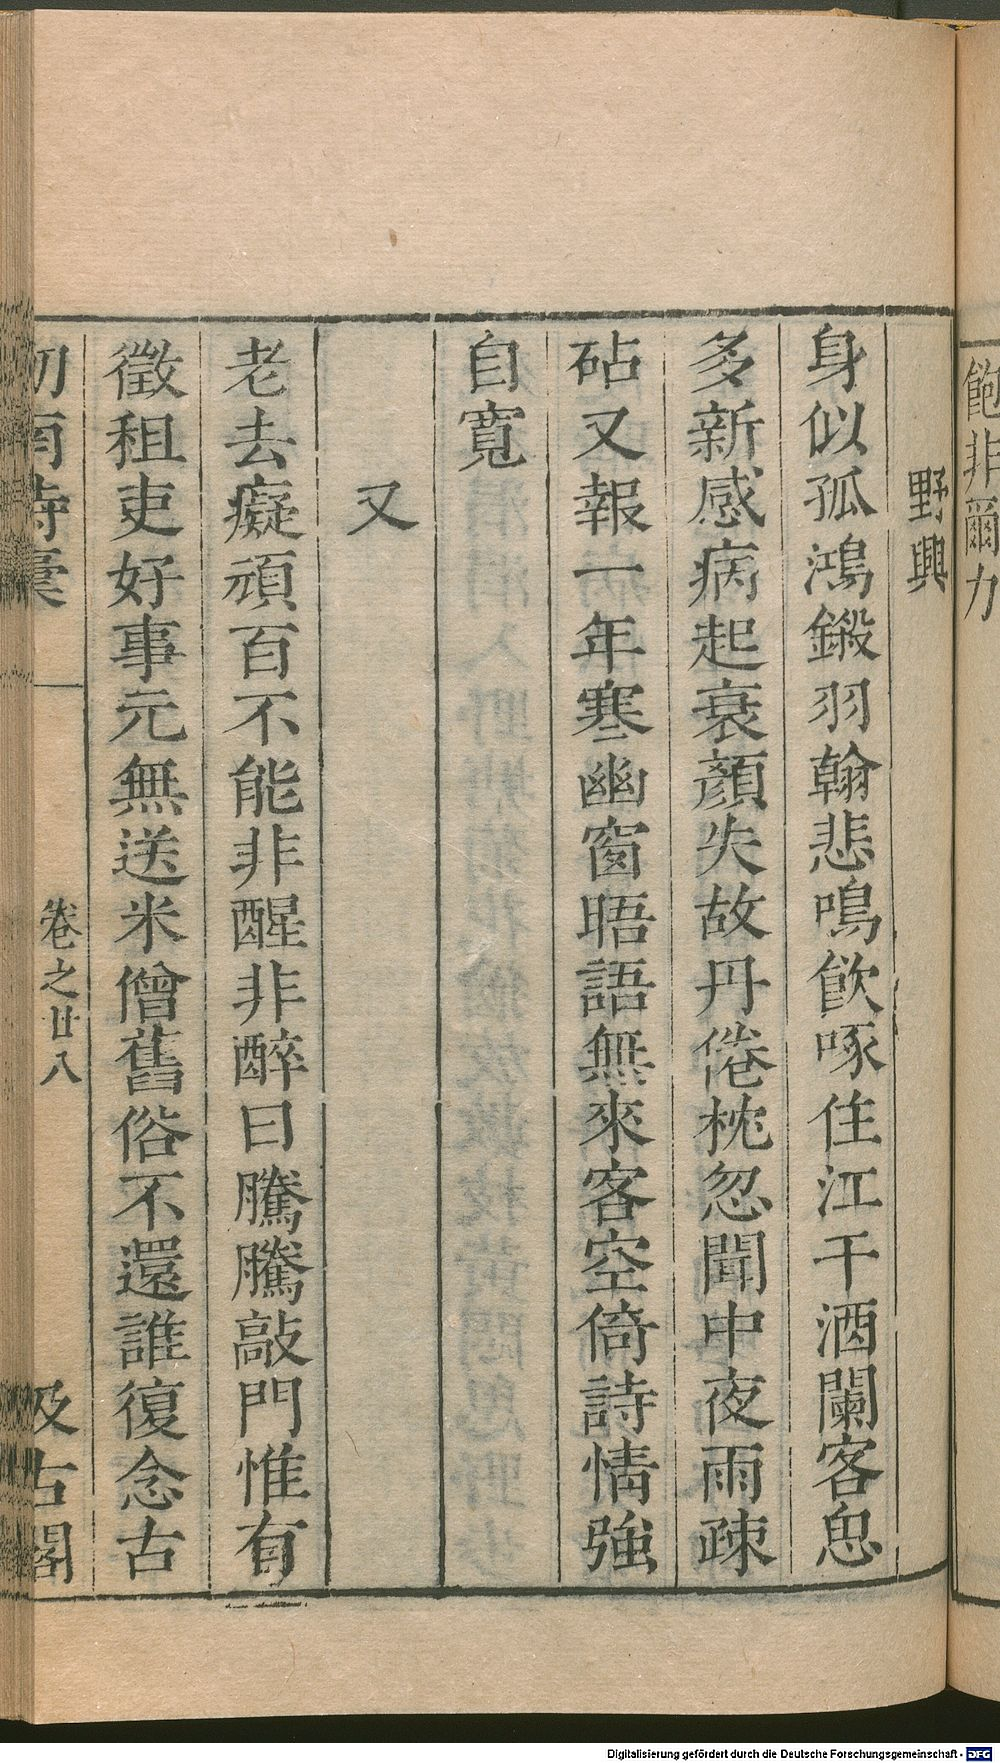 飽非爾力
野興
身似孤鴻鎩羽翰悲鳴飲啄住江干酒闌客恖
多新感病起衰顏失故丹倦枕忽聞中夜雨疎
砧又報一年寒幽窗晤語無來客空倚詩情強
自寬
又
老去癡頑百不能非醒非醉曰騰騰敲門惟有
徵租吏好事元無送米僧舊俗不還誰復念古
劒南詩稾
卷之廿八
汲古閣
Digitalisierung gefördert durch die Deutsche Forschungsgemeinschaft - DFG